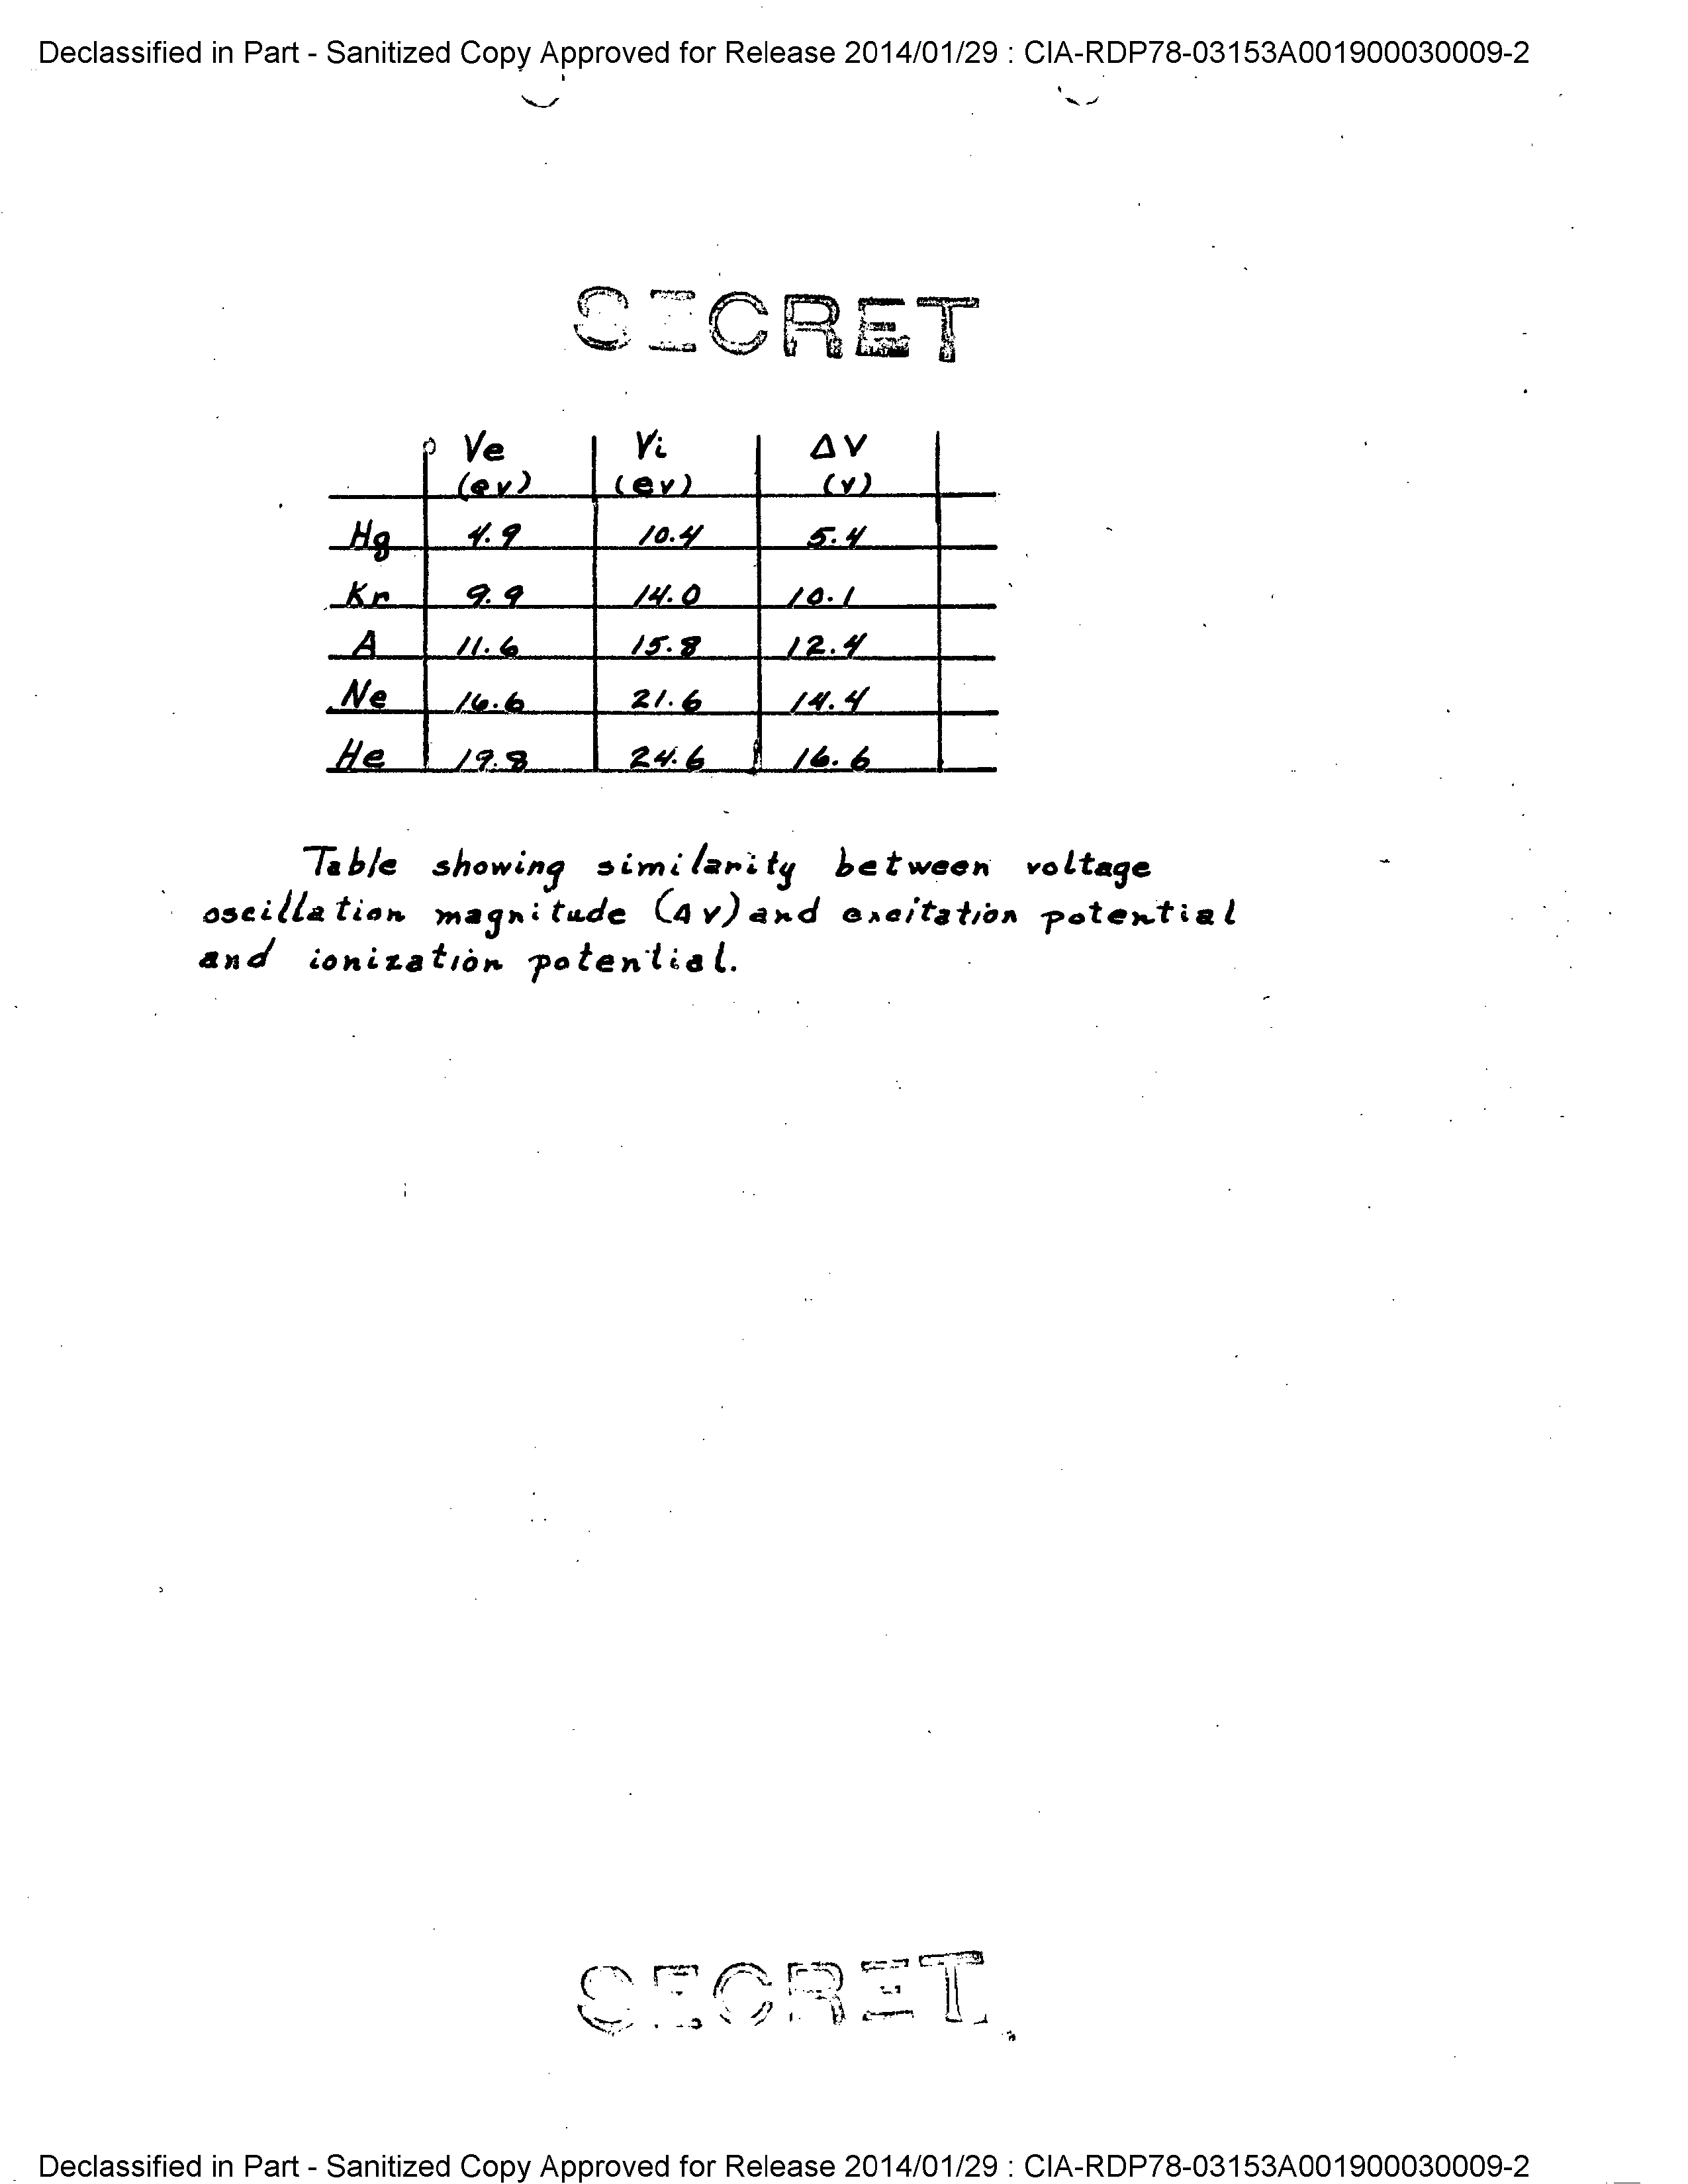 Declassified in Part - Sanitized Copy Approved for Release 2014/01/29 : CIA-RDP78-03153A001900030009-2
SECRET
Ve Vi ΔV
(ev) (ev) (v)
Hg 4.9 10.4 5.4
Kr 9.9 14.0 10.1
A 11.6 15.8 12.4
Ne 16.6 21.6 14.4
He 19.8 24.6 16.6
Table showing similarity between voltage
oscillation magnitude (ΔV) and excitation potential
and ionization potential.
SECRET
Declassified in Part - Sanitized Copy Approved for Release 2014/01/29 : CIA-RDP78-03153A001900030009-2